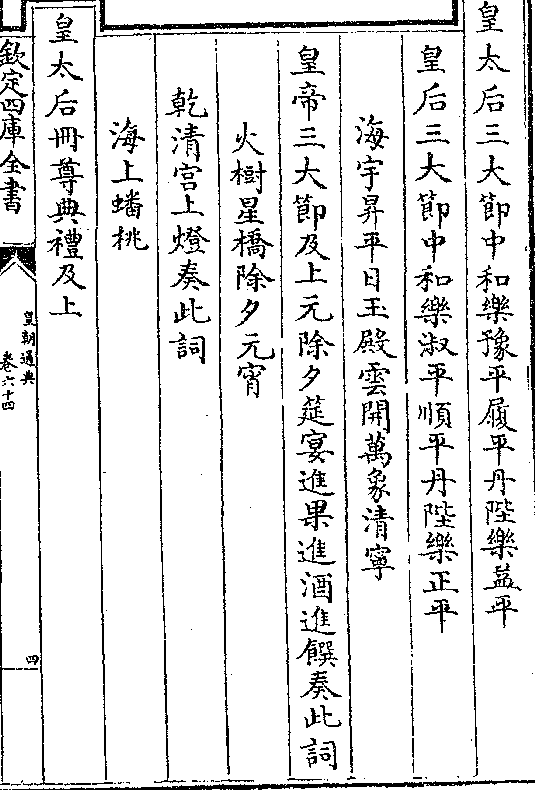 皇太后三大節中和樂豫平履平丹陛樂益平
皇后三大節中和樂淑平順平丹陛樂正平
海宇昇平日玉殿雲開萬象清寧
皇帝三大節及上元除夕筵宴進果進酒進饌奏此詞
火樹星橋除夕元宵
乾清宮上燈奏此詞
海上蟠桃
皇太后冊尊典禮及上
欽定四庫全書
皇朝通典
卷六十四
四